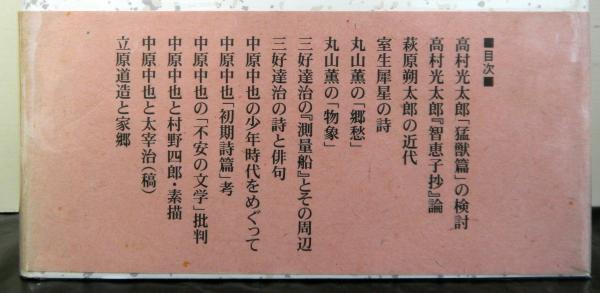 ■目次■
高村光太郎「猛獣篇」の検討
高村光太郎『智恵子抄』論
萩原朔太郎の近代
室生犀星の詩
丸山薫の「郷愁」
丸山薫の「物象」
三好達治の『測量船』とその周辺
三好達治の詩と俳句
中原中也の少年時代をめぐって
中原中也「初期詩篇」考
中原中也の「不安の文学」批判
中原中也と村野四郎・素描
中原中也と太宰治(稿)
立原道造と家郷